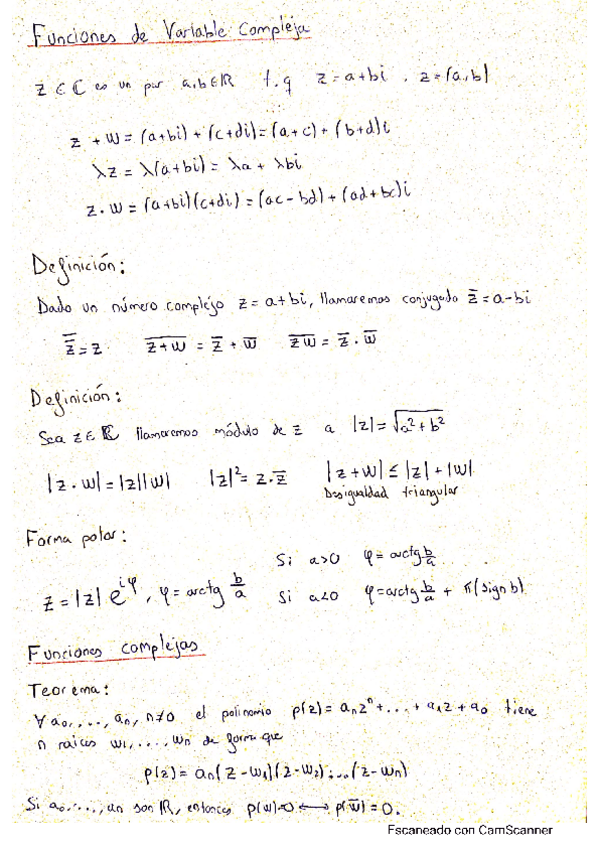 Funciones de Variable Compleja
z ∈ ℂ es un par a,b∈ℝ t.q z=a+bi . z=(a,b)
z + w = (a+bi) + (c+di) = (a+c) + (b+d)i
λz = λ(a+bi) = λa + λbi
z·w = (a+bi)(c+di) = (ac-bd) + (ad+bc)i
Definición:
Dado un número complejo z = a+bi, llamaremos conjugado z̅ = a-bi
z̿ = z   \overline{z+w} = z̅ + w̅   \overline{zw} = z̅ · w̅
Definición:
Sea z∈ ℂ llamaremos módulo de z a |z| = √(a²+b²)
|z·w| = |z||w|   |z|² = z·z̅   |z+w| ≤ |z| + |w|
Desigualdad triangular
Forma polar:
Si a>0 φ = arctg b/a
z = |z| e^{iφ}, φ = arctg b/a   Si a<0 φ = arctg b/a + π(sign b)
Funciones complejas
Teorema:
∀ a₀,...,aₙ, n≠0 el polinomio p(z) = aₙzⁿ+...+a₁z+a₀ tiene
n raices w₁,...,wₙ de forma que
p(z) = aₙ(z-w₁)(z-w₂)...(z-wₙ)
Si a₀,...,aₙ son ℝ, entonces p(w)=0 ⟷ p(w̅)=0.
Escaneado con CamScanner